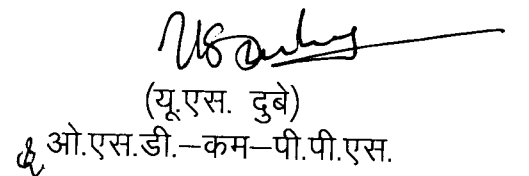 (यू.एस. दुबे)
ओ.एस.डी.–कम–पी.पी.एस.